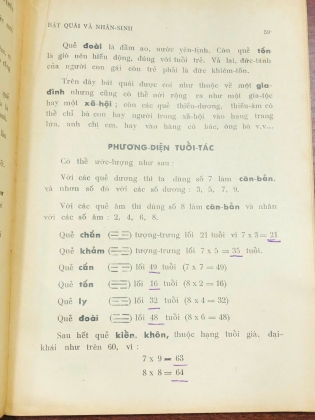 BÁT QUÁI VÀ NHÂN-SINH 59
Quẻ đoài là đầm ao, nước yên-tịnh. Còn quẻ tốn
là gió nên hiếu động, đúng với tuổi trẻ. Vả lại, đức-tánh
của người con gái còn trẻ phải là đức khiêm-tốn.
Trên đây bát quái được coi như thuộc về một gia-
đình nhưng cũng có thể nới rộng ra như một gia-tộc
hay một xã-hội ; còn các quẻ thiếu-dương, thiếu-âm có
thể chỉ bà con hay người trong xã-hội vào hạng trang
lứa, anh chị em, hay vào hàng cô bác, ông bà v.v...
PHƯƠNG-DIỆN TUỔI-TÁC
Có thể ước-lượng như sau :
Với các quẻ dương thì ta dùng số 7 làm căn-bản.
và nhơn số đó với các số dương : 3, 5, 7, 9.
Với các quẻ âm thì dùng số 8 làm căn-bản và nhân
với các số âm : 2, 4, 6, 8.
Quẻ chấn (☳) tượng-trưng lối 21 tuổi vì 7 x 3 = 21
Quẻ khảm (☵) tượng-trưng lối 7 x 5 = 35 tuổi.
Quẻ cấn (☶) lối 49 tuổi (7 x 7 = 49)
Quẻ tốn (☴) lối 16 tuổi (8 x 2 = 16)
Quẻ ly (☲) lối 32 tuổi (8 x 4 = 32)
Quẻ đoài (☱) lối 48 tuổi (8 x 6 = 48)
Sau hết quẻ kiền, khôn, thuộc hạng tuổi già, đại-
khái như trên 60, vì :
7 x 9 = 63
8 x 8 = 64